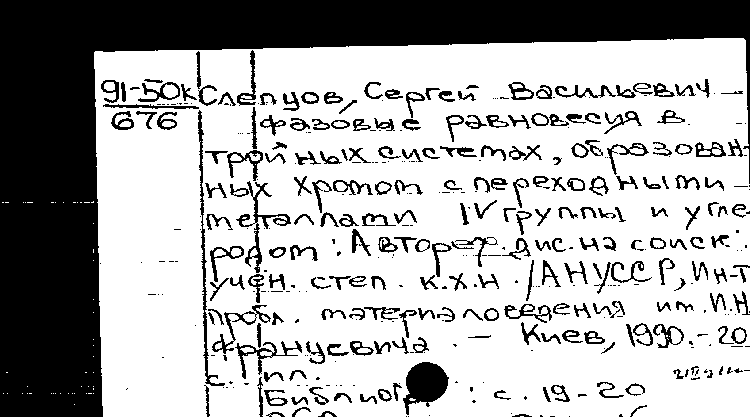 91-50к Слепцов, Сергей Васильевич
676 Фазовые равновесия в
тройных системах, образован-
ных хромом с переходными
металлами IV группы и угле-
родом : Автореф. дис. на соиск.
учен. степ. к.х.н. / АН УССР, Ин-т
пробл. материаловедения им. И.Н.
Францевича. – Киев, 1990. – 20
с. : ил.
Библиогр. : с. 19-20